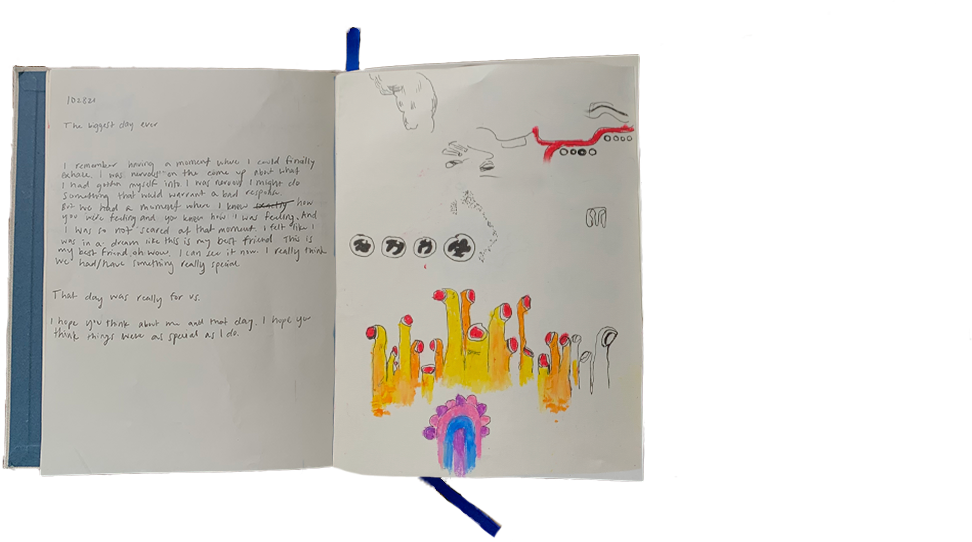 102821
The biggest day ever
I remember having a moment where I could finally
exhale. I was nervous on the come up about what
I had gotten myself into I was nervous I might do
something that would warrant a bad response.
But we had a moment where I knew exactly how
you were feeling and you knew how I was feeling. And
I was so not scared at that moment. I felt like I
was in a dream like this is my best friend. This is
my best friend, oh wow, I can see it now. I really think
we had/have something really special
That day was really for us.
I hope you think about me and that day. I hope you
think things were as special as I do.